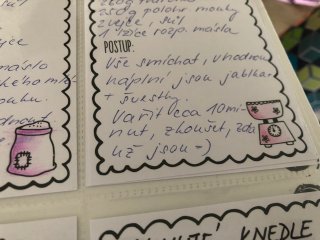 250g polohr. mouky
2 vejce, sůl
1 lžíce rozp. másla
POSTUP:
Vše smíchat, vhodnou
náplní jsou jablka
+ švestky.
Vařit cca 10 mi-
nut, zkoušet, zda
už jsou :-)
ejce
máslo
KNEDLE